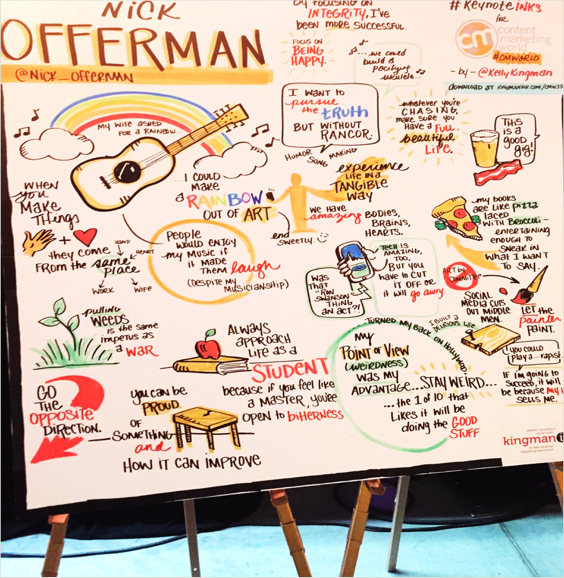 NICK
OFFERMAN
@NICK_OFFERMAN
by focusing on
INTEGRITY, I'VE
been more successful
FOCUS ON
BEING
HAPPY.
♪... we could
build a
pacifying
ukulele...
#KeynoteINKS
FOR
content
marketing
world
#CMWORLD
- by - @KellyKingman
MY WIFE ASKED
FOR A RAINBOW
I COULD
MAKE
A RAINBOW
OUT OF ART
I WANT TO
pursue
the truth
BUT WITHOUT
RANCOR.
HUMOR SONG MAKING
whatever you're
CHASING,
MAKE SURE YOU
HAVE A FULL
beautiful
LIFE.
THIS
IS A
GOOD
gig!
WHEN
YOU
MAKE
THINGS
they come
FROM THE same
PLACE
HAND
HEART
WORK
WIFE
PEOPLE
WOULD ENJOY
MY MUSIC IF
IT MADE
THEM laugh
(DESPITE MY
MUSICIANSHIP)
end
SWEETLY.
experience
LIFE IN A
TANGIBLE
WAY
WE HAVE
amazing BODIES,
BRAINS,
HEARTS.
my books
are like PIZZA
laced
WITH BROCCOLI-
entertaining
enough to
SNEAK IN
WHAT I WANT
TO SAY.
WAS
THAT
RON
SWANSON
THING
AN ACT?!
TECH IS
AMAZING,
TOO,
BUT YOU
HAVE TO CUT
IT OFF OR
it will go away.
ART BY
COMMITTEE
SOCIAL
MEDIA CUTS
OUT MIDDLE
MEN.
LET THE
painter
PAINT.
pulling
WEEDS
IS THE SAME
IMPETUS AS
a WAR
ALWAYS
APPROACH
LIFE AS A
STUDENT
because if you feel like
a MASTER, you're
OPEN TO bitterness
TURNED MY BACK ON HOLLYWOOD
MY
POINT OF VIEW
(WEIRDNESS)
WAS MY
ADVANTAGE... STAY WEIRD...
... the 1 of 10 that
likes it will be
doing the GOOD
STUFF
GO
THE
OPPOSITE
DIRECTION.
you can be
PROUD
OF
SOMETHING
and
HOW IT CAN IMPROVE
IF I'M GOING TO
SUCCEED, it will
be because my
sells me.
kingman